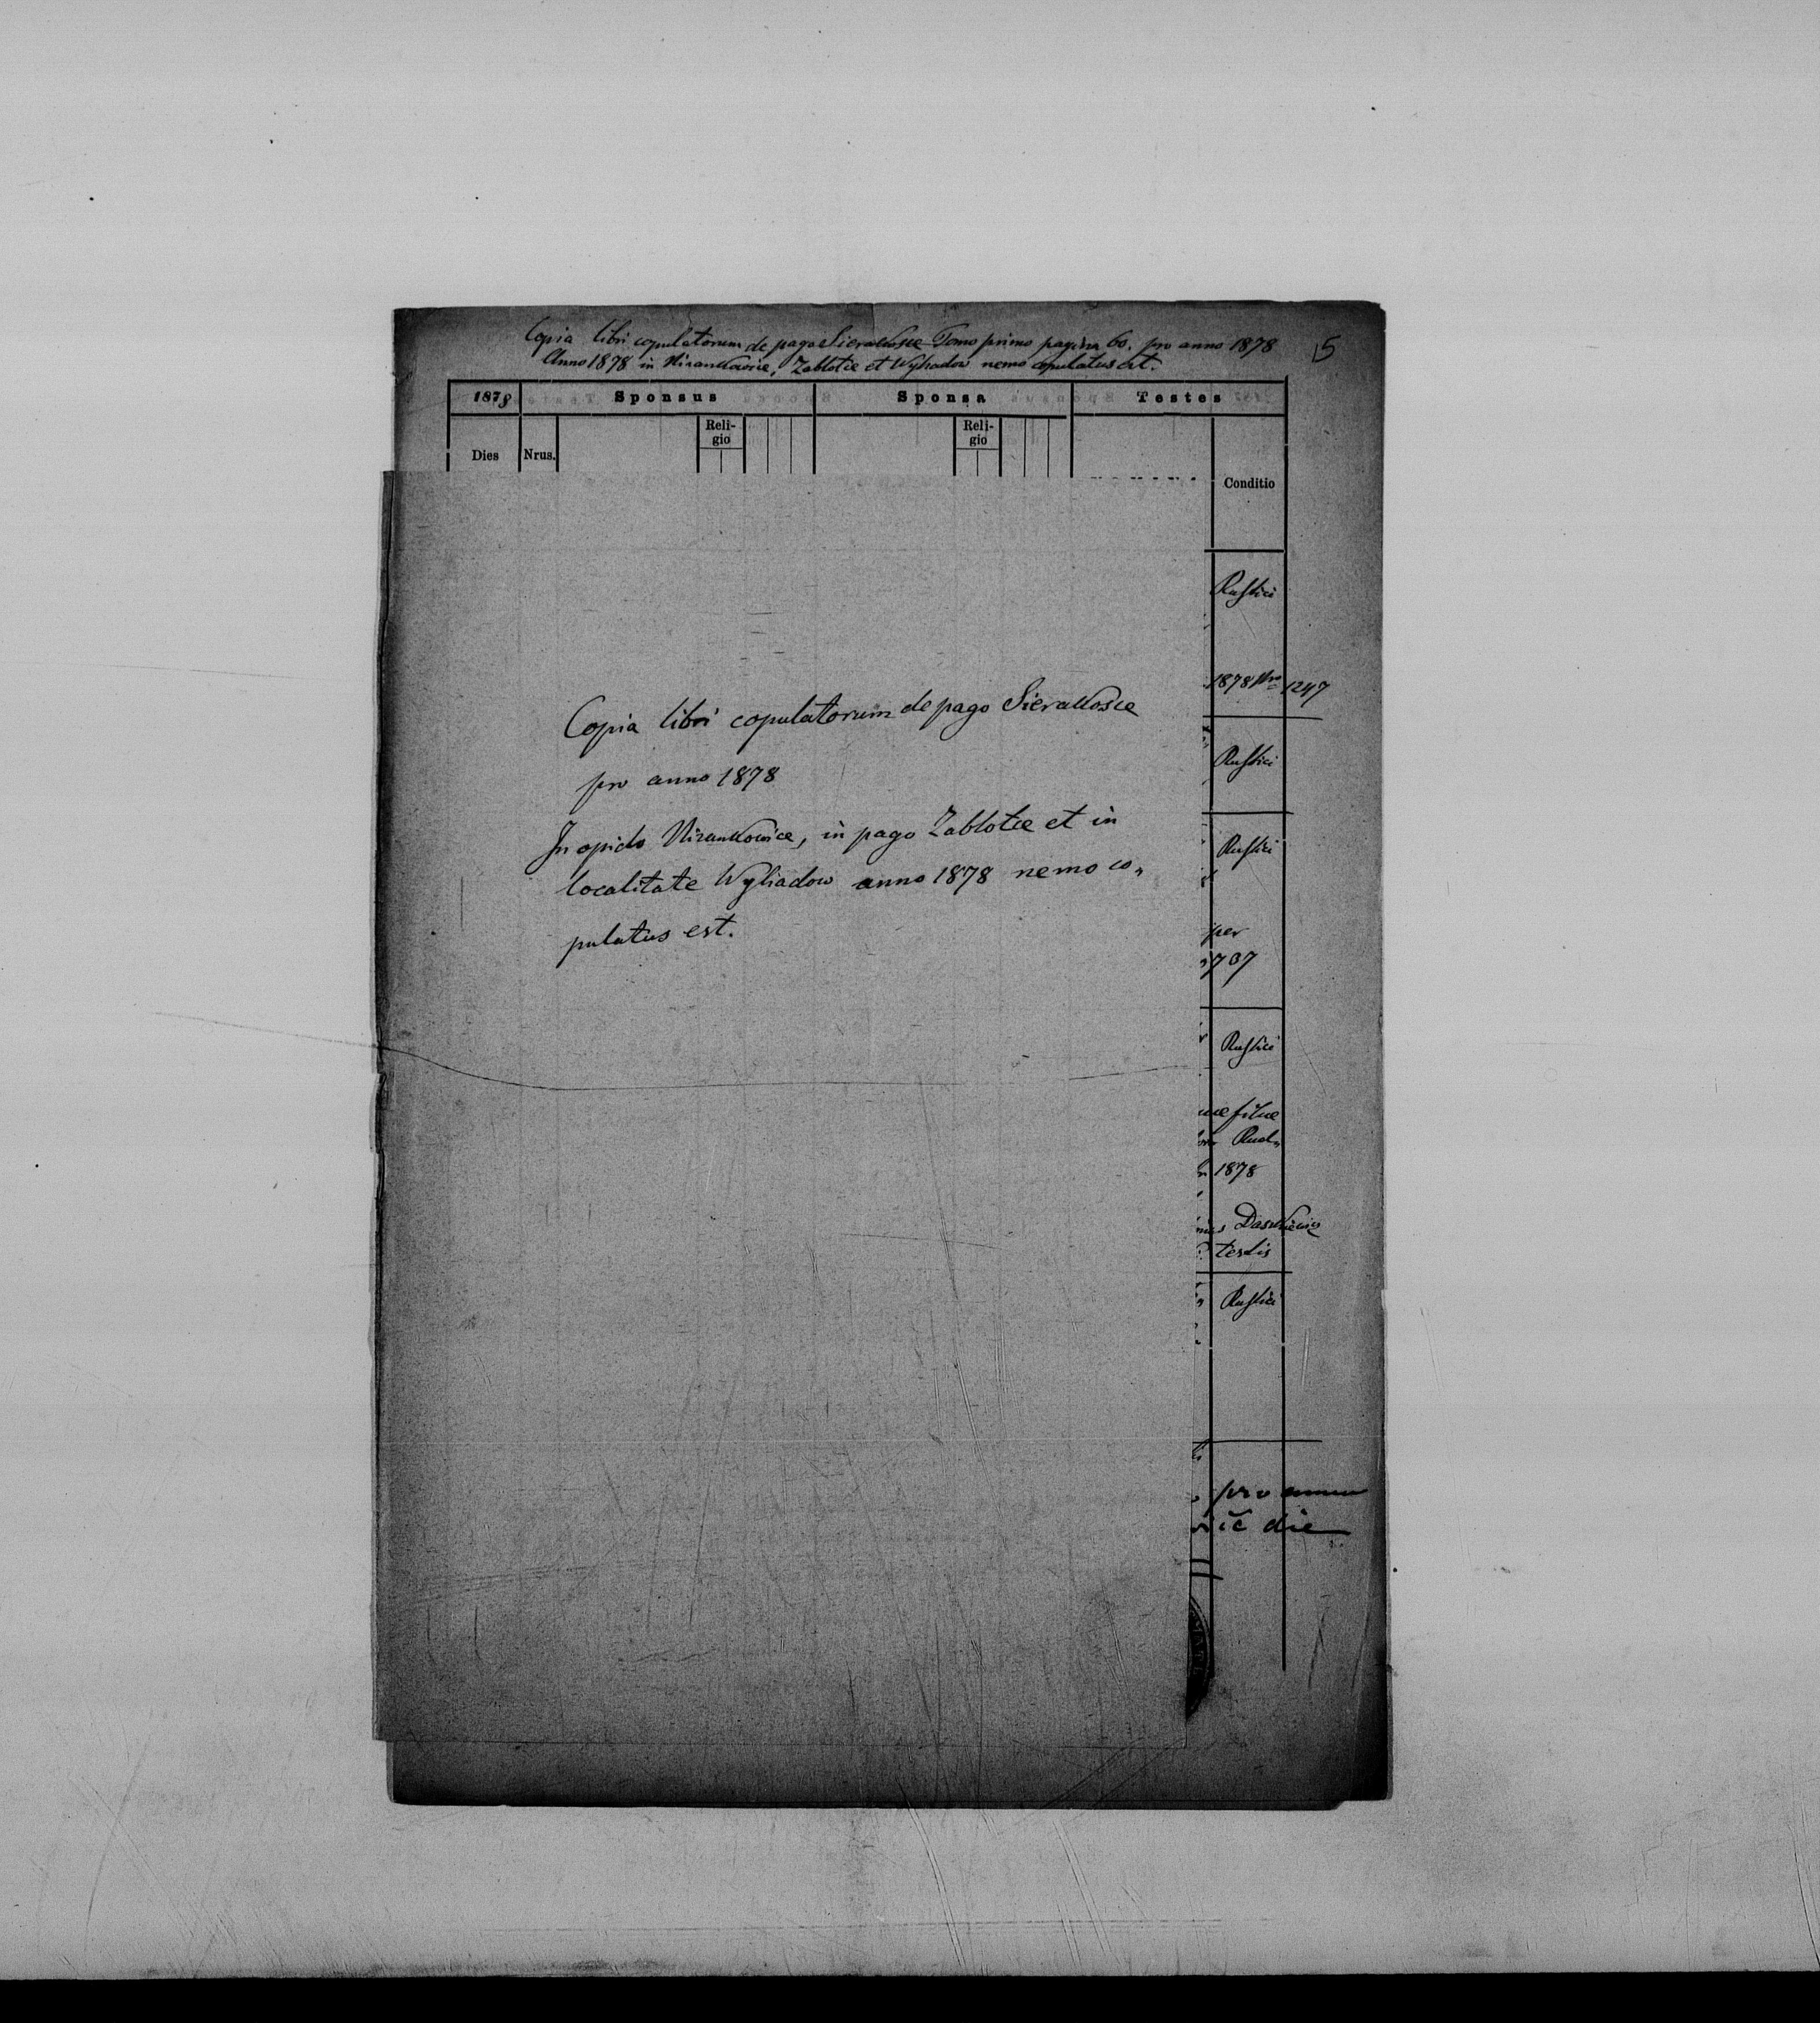 Copia libri copulatorum de pago Sierakosce Tomo primo pagina 60. pro anno 1878
Anno 1878 in Nizankowice, Zablotce et Wyhadow nemo copulatus est.
15
1878
Sponsus
Sponsa
Testes
Dies
Nrus.
Reli-
gio
Reli-
gio
Conditio
Copia libri copulatorum de pago Sierakosce
pro anno 1878
In opido Nizankowice, in pago Zablotce et in
localitate Wyhadow anno 1878 nemo co„
pulatus est.
Rustici
1878 Nro 1247
Rustici
Rustici
per
707
Rustici
filiae
Rud„
1878
Daszkiewicz
testis
Rustici
pro
die